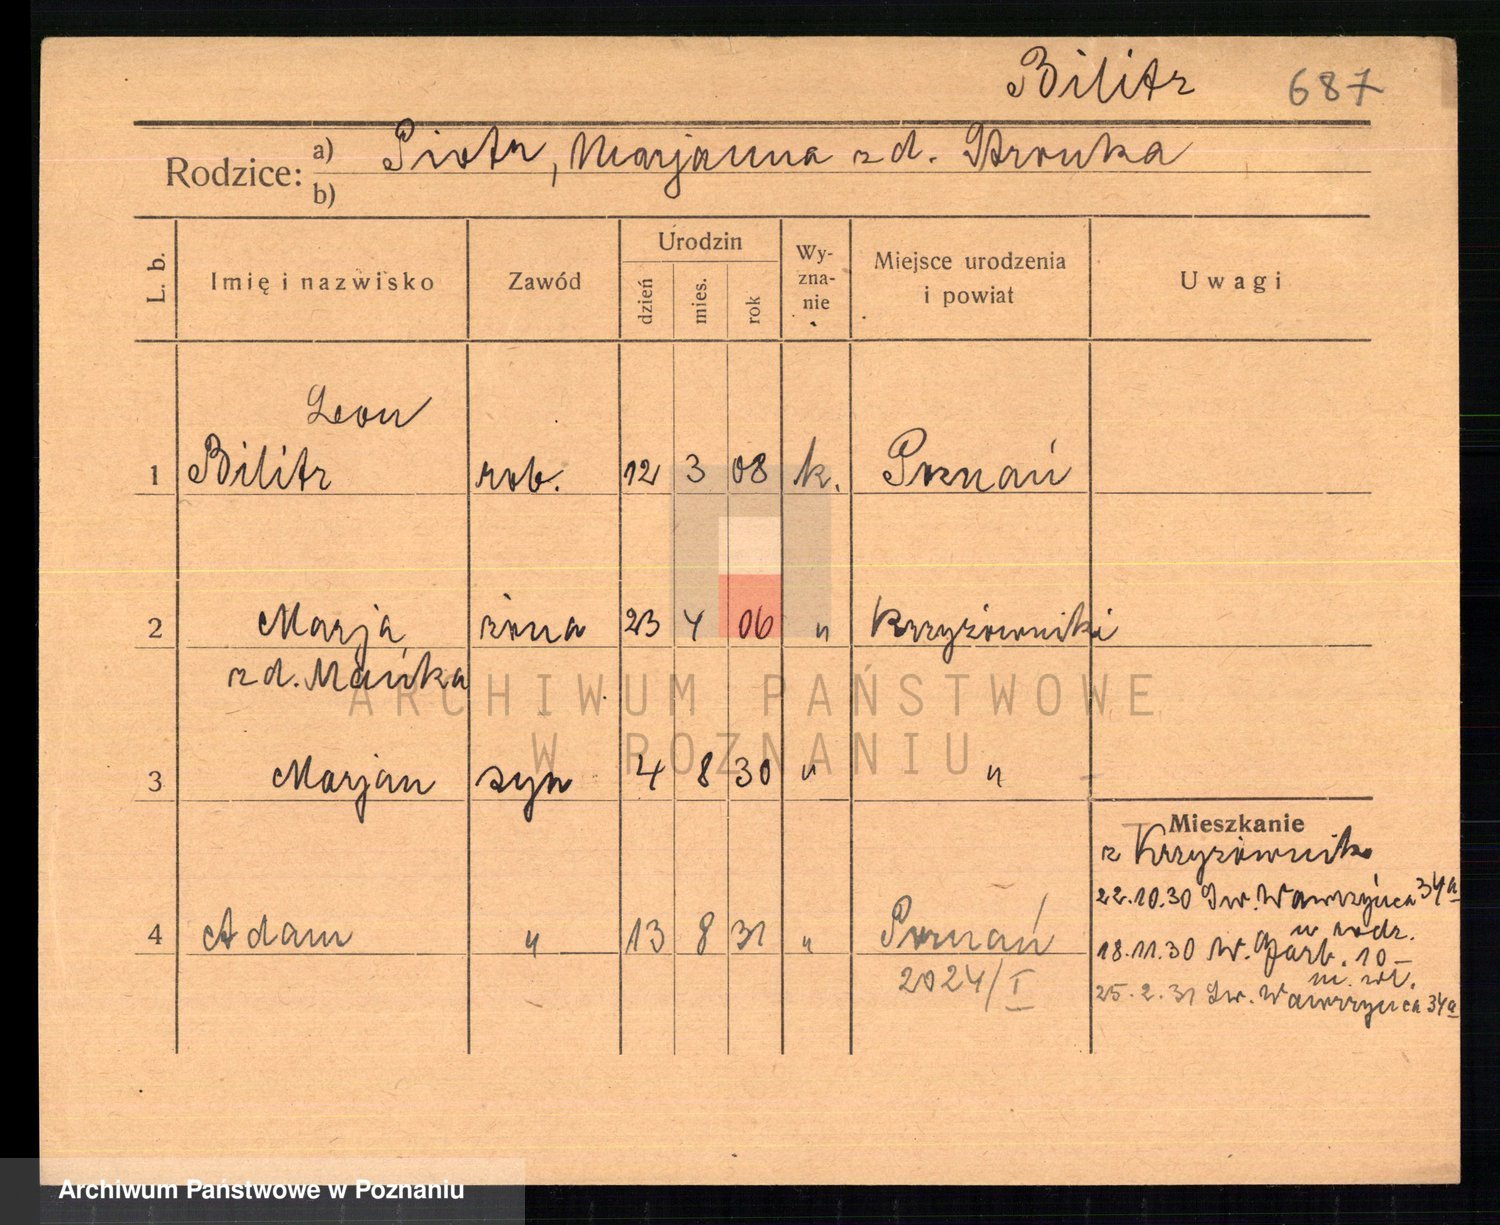 Bilitz 687
Rodzice: a) Piotr, Marjanna z d. Stronka
b)
L. b. Imię i nazwisko Zawód Urodzin dzień mies. rok Wy-zna-nie Miejsce urodzenia i powiat Uwagi
Leon
1 Bilitz rob. 12 3 08 k. Poznań
2 Marja żona 23 4 06 " Krzyżowniki
z d. Mańka
ARCHIWUM PAŃSTWOWE
W POZNANIU
3 Marjan syn 4 8 30 " "
Mieszkanie
z Krzyżownik
22.10.30 Św. Wawrzyńca 34a
u rodz.
4 Adam " 13 8 31 " Poznań
18.11.30 W. Garb. 10 –
2024/I
25.2.31 Św. Wawrzyńca 34a
Archiwum Państwowe w Poznaniu